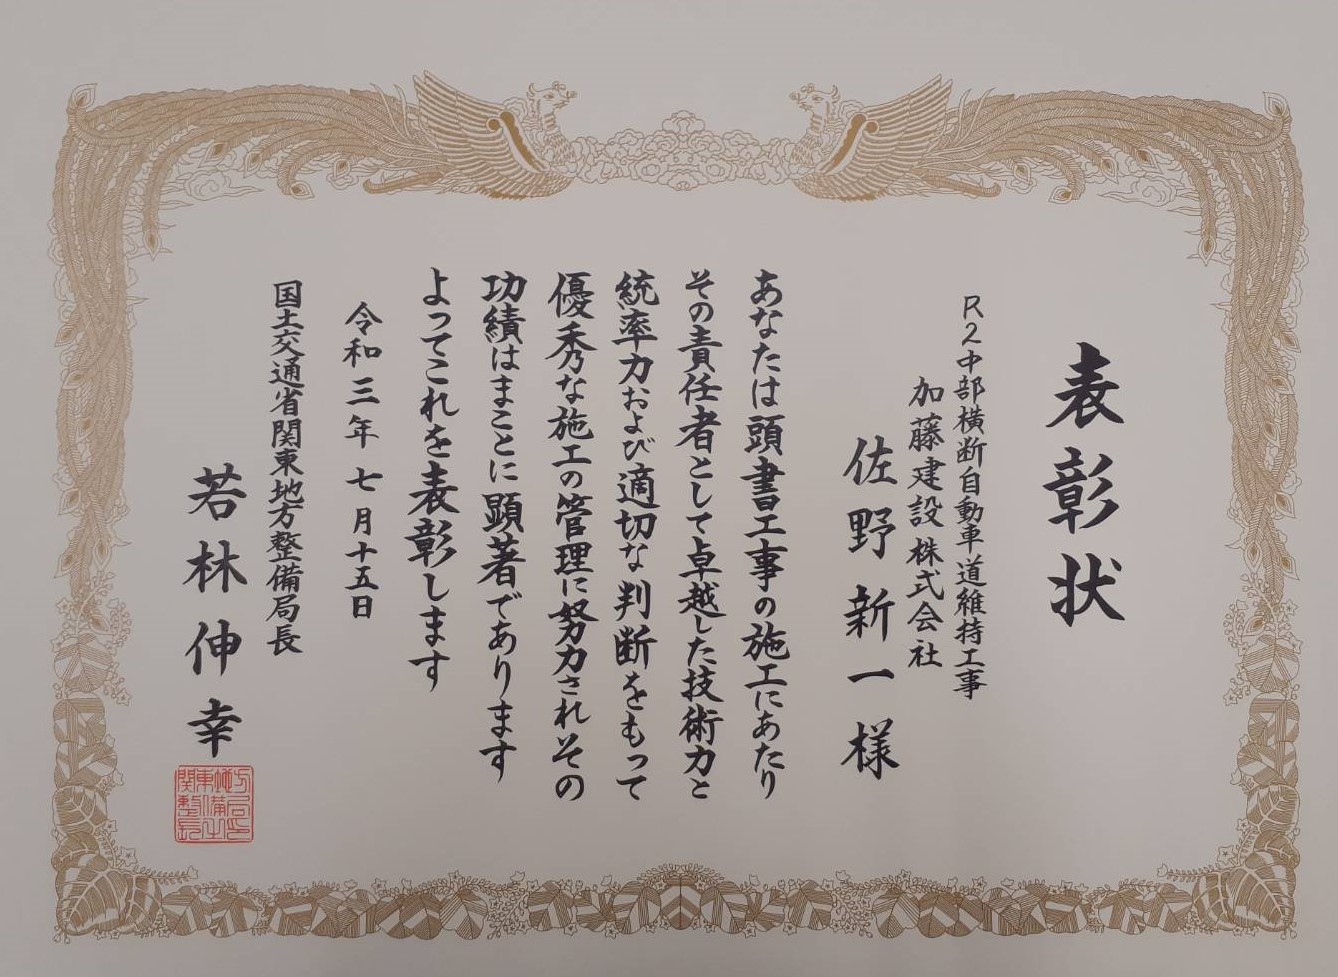 表彰状
R2中部横断自動車道維持工事
加藤建設株式会社
佐野新一様
あなたは頭書工事の施工にあたり
その責任者として卓越した技術力と
統率力および適切な判断をもって
優秀な施工の管理に努力されその
功績はまことに顕著であります
よってこれを表彰します
令和三年七月十五日
国土交通省関東地方整備局長
若林伸幸